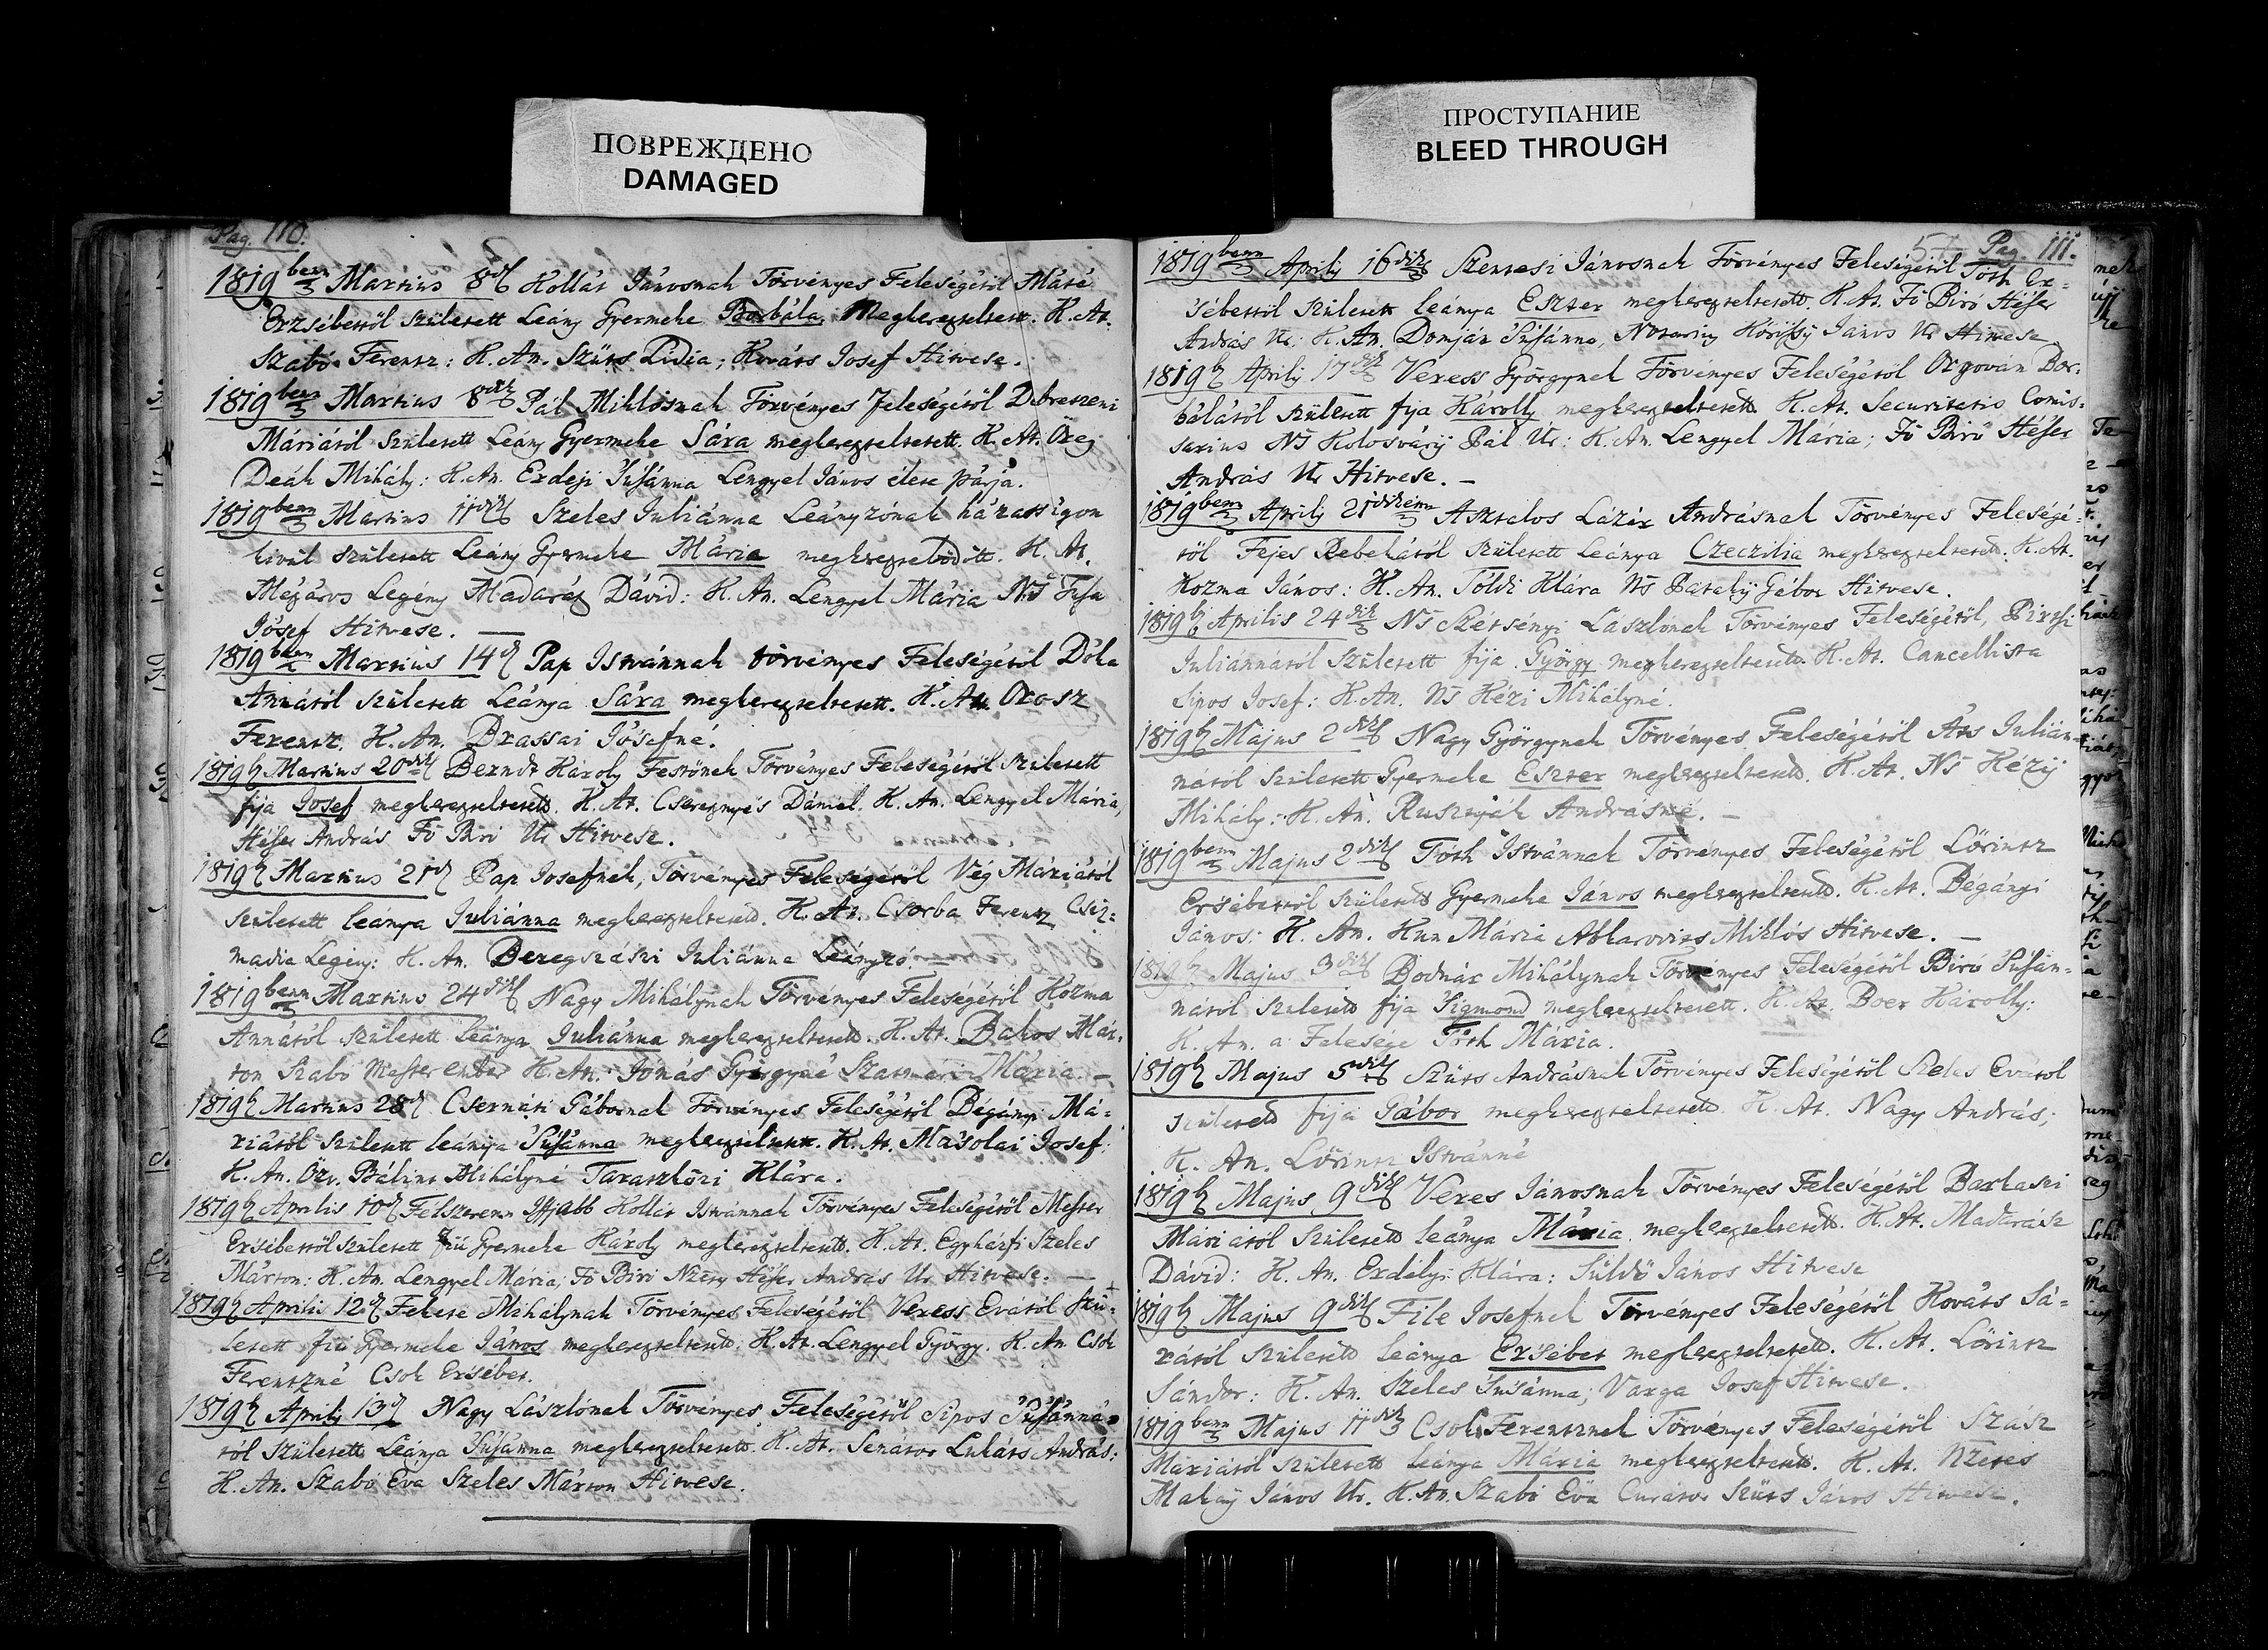 ПОВРЕЖДЕНО
DAMAGED
ПРОСТУПАНИЕ
BLEED THROUGH
Pag. 110.
1819benn Martius 8d Kollát Jánosnak Törvényes Feleségétöl Máté
Erzsébettöl született Leány Gyermeke Borbála Megkereszteltetett. K. At.
Szabó Ferentz: K. An. Szüts Lidia; Kováts Josef Hitvese.
1819benn Martius 8dik Pál Miklósnak Törvényes Feleségétöl Debretzeni
Máriától született Leány Gyermeke Sára megkereszteltetett. K. At. Öreg
Deák Mihály: K. An. Erdeji Susánna Lengyel János élete párja.
1819benn Martius 11dik Szeles Juliánna Leányzónak házasságon
kivül született Leány Gyermeke Mária megkeresztelödött. K. At.
Mészáros Legény Madarász Dávid: K. An. Lengyel Mária Ns
Jósef Hitvese. —
1819benn Martius 14d Pap Istvánnak törvényes Feleségétöl Dóka
Annától született Leánya Sára megkereszteltetett. K. At. Orosz
Ferentz. K. An. Brassai Jósefné.
1819b Martius 20dik Berndt Károly Festönek Törvényes Feleségétöl született
fija Josef megkereszteltetett. K. At. Cseregnyés Dániel. K. An. Lengyel Mária,
Héfer András Fö Biró Ur Hitvese.
1819b Martius 21d Pap Josefnek, Törvényes Feleségétöl Vég Máriától
született leánya Juliánna megkereszteltetett. K. At. Csorba Ferentz Csiz=
madia Legény: K. An. Beregszászi Juliánna Leányzó. —
1819benn Martius 24dik Nagy Mihálynak Törvényes Feleségétöl Kozma
Annától született leánya Juliánna megkereszteltetett. K. At. Bakos Már=
ton Szabó Mester ember K. An. Jónás Györgyné Szatmári Mária. —
1819b Martius 28d Csernási Gábornak Törvényes Feleségétöl Bégányi Má=
riától született leánya Susánna megkereszteltetett. K. At. Masolai Josef:
K. An. Özv. Bálint Mihályné Taraszközi Klára.
1819b Aprilis 10d Félszerenn Ifjabb Kollát Istvánnak Törvényes Feleségétöl Mester
Ersébettöl született fiú Gyermeke Károly megkereszteltetett. K. At. Egyházfi Szeles
Márton: K. An. Lengyel Mária, Fö Biró Héfer András Ur Hitvese. —
1819b Aprilis 12d Fekete Mihálynak Törvényes Feleségétöl Veress Evától szü=
letett fiú Gyermeke János megkereszteltetett. K. At. Lengyel György. K. An. Csok
Ferentzné Csok Ersébet.
1819b Aprilj 13d Nagy Lászlónak Törvényes Feleségétöl Sipos Susánná=
tól Született Leánya Susánna megkereszteltetett. K. At. Senátor Lukáts András:
K. An. Szabó Eva Szeles Márton Hitvese.
57 Pag. 111.
1819benn Aprilj 16dik Szentesi Jánosnak Törvényes Feleségétöl Tóth Er=
'sébettöl Született leánya Eszter megkereszteltetett. K. At. Fö Biró Héfer
András Ur: K. An. Domján Susánna, Notarius János Ur Hitvese
1819b Aprilj 17dik Veress Györgynek Törvényes Feleségétöl Orgován Bor=
bálától született fija Károlly megkereszteltetett. K. At. Securitatis Comis=
sarius Ns Kolosvárÿ Pál Ur: K. An. Lengyel Mária; Fö Biró Héfer
András Ur Hitvese. —
1819benn Aprilj 21dikénn Asztalos Lázár Andrásnak Törvényes Feleségé=
töl Fejes Rebekától született leánya Czeczilia megkereszteltetett. K. At.
Kozma János: K. An. Tóldi Klára Ns Patakÿ Gábor Hitvese.
1819b Aprilis 24dik Ns Szétsenyi Lászlónak Törvényes Feleségétöl, Birtsi
Juliánnától Született fija György megkereszteltetett. K. At. Cancellista
Sipos Josef: K. An. Ns Kézi Mihályné.
1819b Majus 2dik Nagy Györgynek Törvényes Feleségétöl Áts Julián=
nától született Gyermeke Eszter megkereszteltetett. K. At. Ns Kézÿ
Mihály: K. An. Rusznyák Andrásné. —
1819benn Majus 2dik Tóth Istvánnak Törvényes Feleségétöl Lörintz
Ersébettöl született Gyermeke János megkereszteltetett. K. At. Bégányi
János: K. An. Kun Mária Ablarovits Miklós Hitvese. —
1819b Majus 3dik Bodnár Mihálynak Törvényes Feleségétöl Biró Susán=
nától Született fija Sigmond megkereszteltetett. K. At. Boer Károlly:
K. An. a Felesége Tóth Mária.
1819b Majus 5dik Szüts Andrásnak Törvényes Feleségétöl Szeles Evától
született fija Gábor megkereszteltetett K. At. Nagy András;
K. An. Lörintz Istvánné
1819b Majus 9dik Veres Jánosnak Törvényes Feleségétöl Barkaszi
Máriától Született leánya Mária megkereszteltetett. K. At. Madarász
Dávid: K. An. Erdélyi Klára: Süldö János Hitvese
1819b Majus 9dik File Josefnek Törvényes Feleségétöl Kováts Sá=
rától Született leánya Ersébet megkereszteltetett. K. At. Lörintz
Sándor: K. An. Szeles Susánna; Varga Josef Hitvese.
1819benn Majus 11dik Csok Ferentznek Törvényes Feleségétöl Szász
Máriától Született leánya Mária megkereszteltetett. K. At.
Makaÿ János Ur. K. An. Szabó Eva Curátor Szüts János Hitvese.